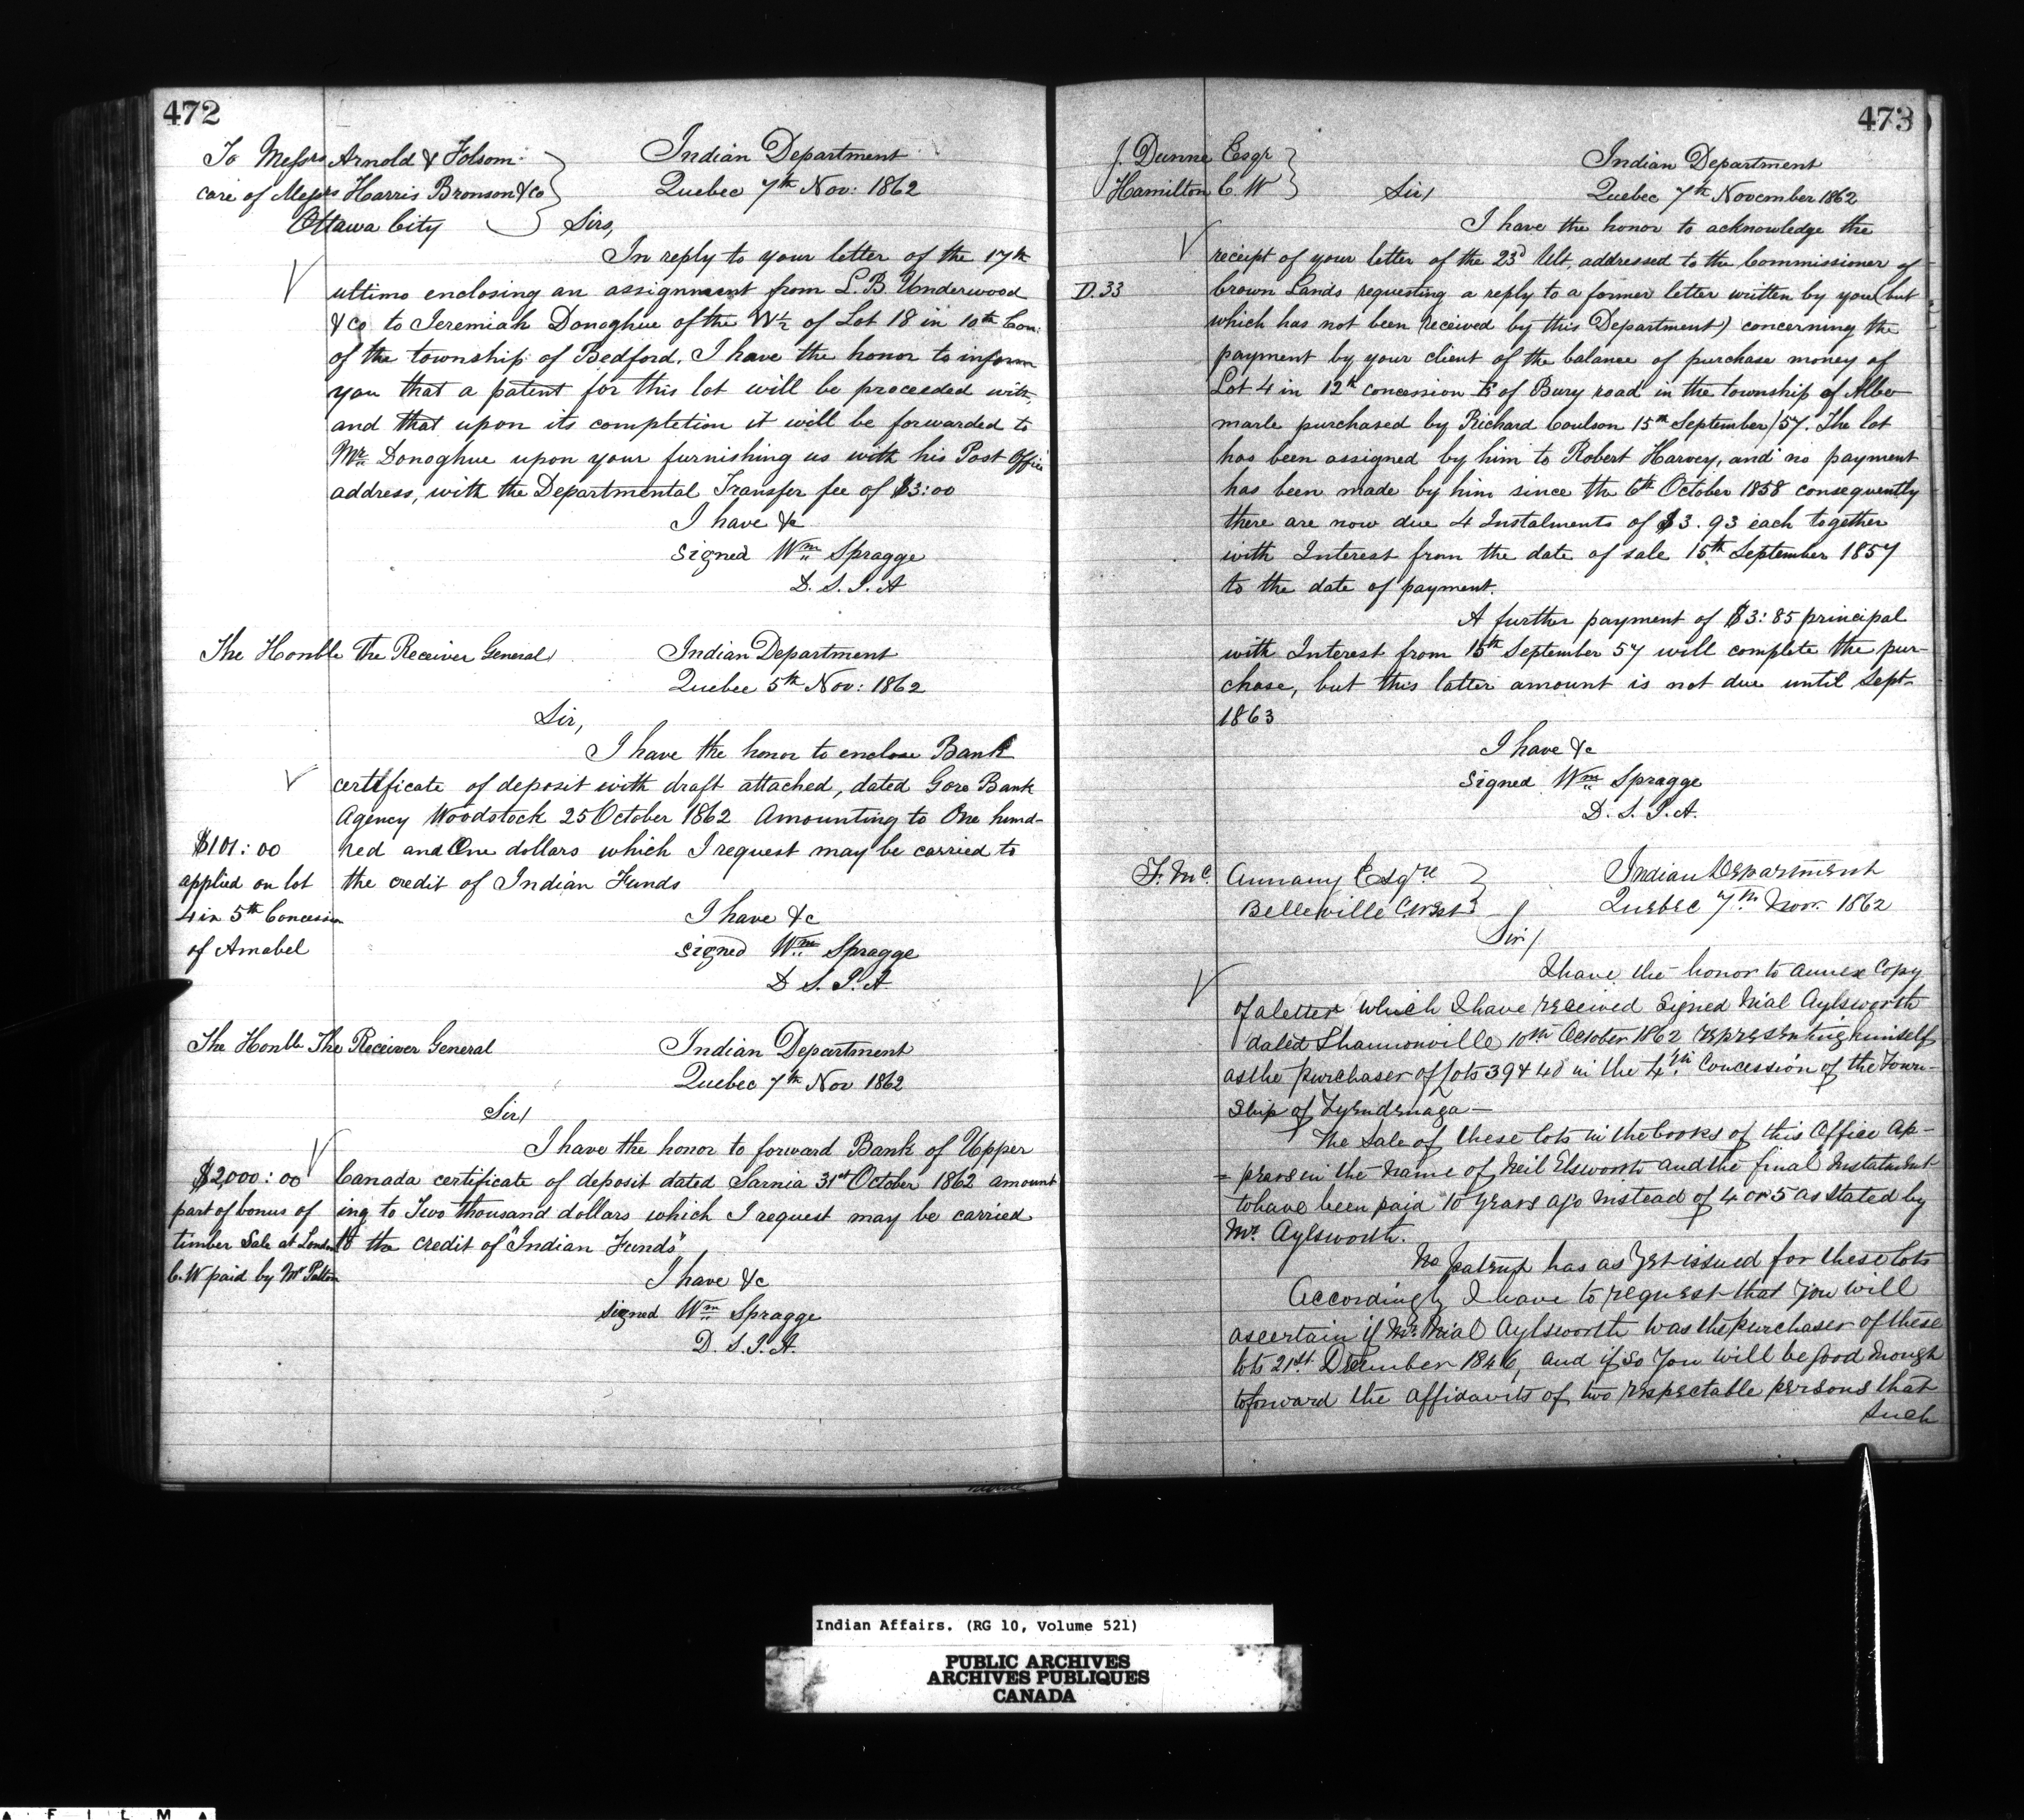 472
To Messrs Arnold & Folsom
care of Messrs Harris Bronson & Co
Ottawa City
Indian Department
Quebec 7th Nov: 1862
Sirs,
In reply to your letter of the 17th
ultimo enclosing an assignment from L.B. Underwood
& Co to Jeremiah Donoghue of the W½ of Lot 18 in 10th Con:
of the township of Bedford. I have the honor to inform
you that a patent for this lot will be proceeded with
and that upon its completion it will be forwarded to
Mr. Donoghue upon your furnishing us with his Post Office
address, with the Departmental Transfer fee of $3:00
I have &c
signed Wm Spragge
D. S. I. A
The Honble the Receiver General
Indian Department
Quebec 5th Nov: 1862
Sir,
I have the honor to enclose Bank
certificate of deposit with draft attached, dated Gore Bank
Agency Woodstock 25 October 1862 Amounting to One hund-
$101:00 red and One dollars which I request may be carried to
applied on lot the credit of Indian Funds
4 in 5th Concession
of Amabel
I have &c
signed Wm Spragge
D S. I. A.
The Honble The Receiver General
Indian Department
Quebec 7th Nov 1862
Sir/
I have the honor to forward Bank of Upper
$2,000:00 Canada certificate of deposit dated Sarnia 31st October 1862 amount
part of bonus of ing to Two thousand dollars which I request may be carried
timber Sale at London to the credit of "Indian Funds"
C.W paid by Mr Patton
I have &c
signed Wm Spragge
D. S. I. A.
473
J. Dunne Esqr
Hamilton C. W
Indian Department
Quebec 7th November 1862
Sir/
I have the honor to acknowledge the
receipt of your letter of the 23d Ult, addressed to the Commissioner of
D.33 Crown Lands requesting a reply to a former letter written by you (but
which has not been received by this Department) concerning the
payment by your client of the balance of purchase money of
Lot 4 in 12th concession E of Bury road in the township of Albe
marle purchased by Richard Coulson 15th September/57. The lot
has been assigned by him to Robert Harvey, and no payment
has been made by him since the 6th October 1858 consequently
there are now due 4 Instalments of $3.93 each together
with Interest from the date of sale 15th September 1857
to the date of payment.
A further payment of $3:85 principal
with Interest from 15th September 57 will complete the pur-
chase, but this latter amount is not due until Sept-
1863
I have &c
signed Wm Spragge
D. S. I. A.
F. Mc. Annany Esqre
Belleville C West
Indian Department
Quebec 7th Nov. 1862
Sir/
I have the honor to annex Copy
of a letter which I have received Signed Nial Aylsworth
dated Shannonville 10th October 1862 representing himself
as the purchaser of Lots 39 & 40 in the 4th Concession of the Town-
ship of Tyendenaga—
The Sale of these lots in the books of this Office ap-
=pears in the name of Neil Elsworth and the final Instalment
to have been paid 10 years ago instead of 4 or 5 as stated by
Mr. Aylsworth.
No patent has as yet issued for these lots
Accordingly I have to request that you will
ascertain if Mr. Nial Aylsworth was the purchaser of these
lots 21st December 1846, and if so you will be good enough
to forward the affidavits of two respectable persons that
such
Indian Affairs. (RG 10, Volume 521)
PUBLIC ARCHIVES
ARCHIVES PUBLIQUES
CANADA